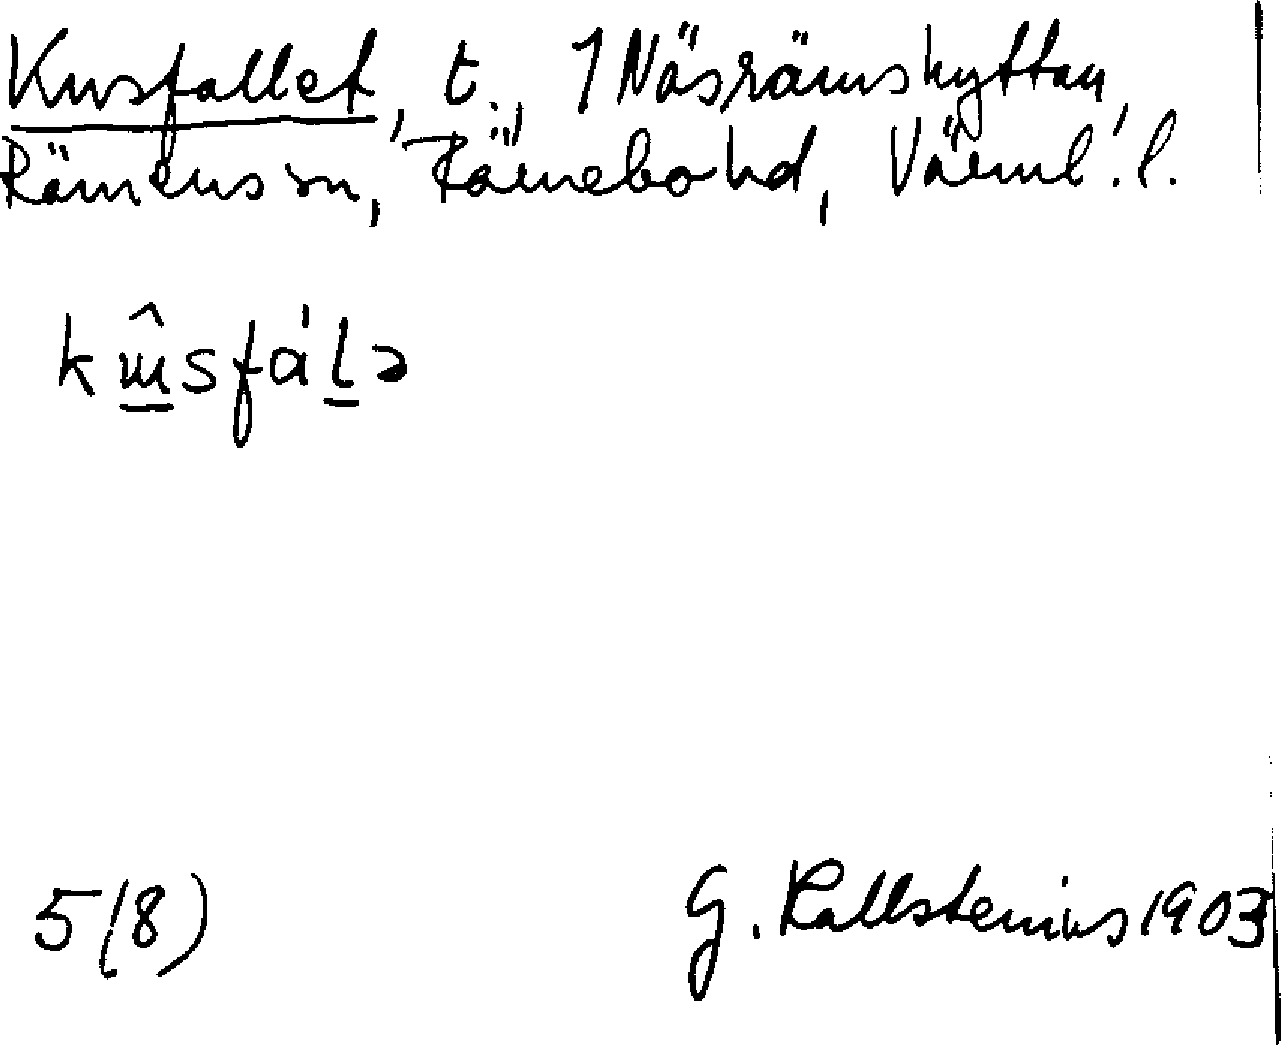 Kusfallet, t., 1 Näsrämshyttan,
Rämens sn, Färnebo hd, Värml. l.
kɯ̂sfáḷə
5(8)
G. Kallstenius 1903